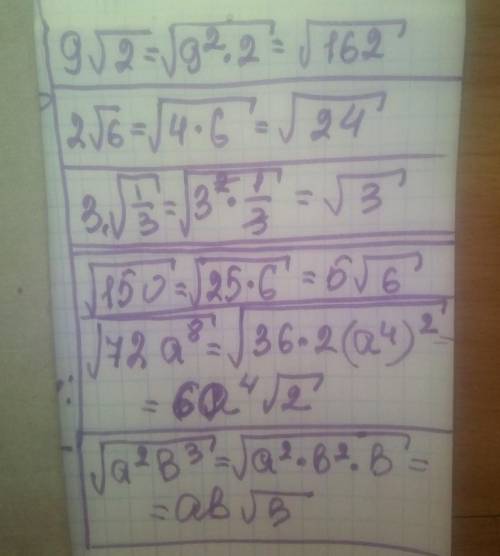 9√2=√9²·2=√162
2√6=√4·6=√24
3·√1/3=√3²·1/3=√3
√150=√25·6=5√6
√72a⁸=√36·2(a⁴)²=
=6a⁴√2
√a²b³=√a²·b²·b=
=ab√3